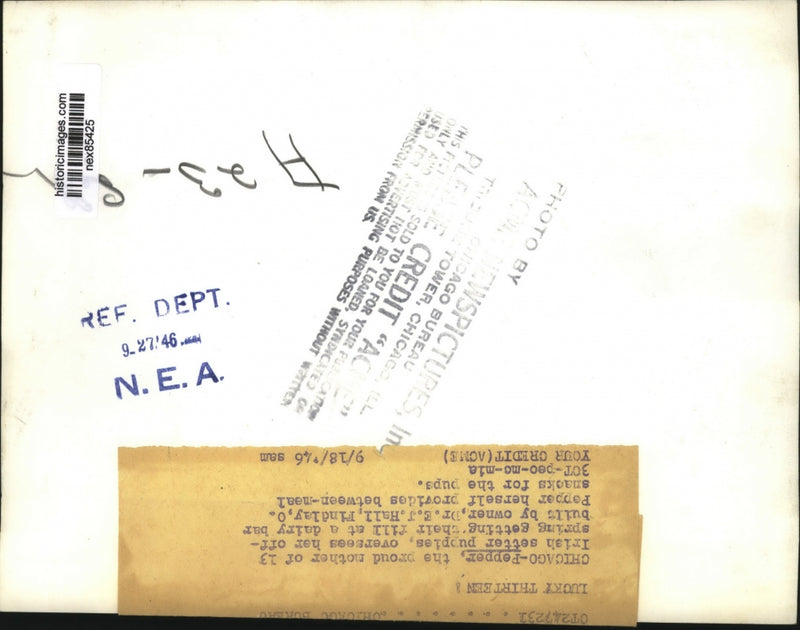 historicimages.com
nex85425
#23-
PHOTO BY
ACME NEWSPICTURES, Inc
CHICAGO BUREAU
TRIBUNE TOWER, CHICAGO, ILL.
PLEASE CREDIT "ACME"
THIS PICTURE IS SOLD TO YOU FOR YOUR PUBLICATION
ONLY AND MUST NOT BE LOANED, SYNDICATED OR
USED FOR ADVERTISING PURPOSES WITHOUT WRITTEN
PERMISSION FROM US.
REF. DEPT.
9-27'46
N.E.A.
OT247231 . . . . . . . . . CHICAGO BUREAU
LUCKY THIRTEEN!
CHICAGO-Pepper, the proud mother of 13
Irish setter puppies, oversees her off-
spring getting their fill at a dairy bar
built by owner,Dr.E.J.Hall,Findlay,O.
Pepper herself provides between-meal
snacks for the pups.
3OT-peo-mo-mia
YOUR CREDIT(ACME) 9/18/'46 sam